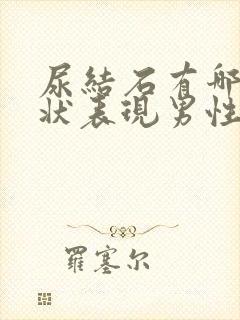 尿結石有哪
狀表現男性
羅塞尔